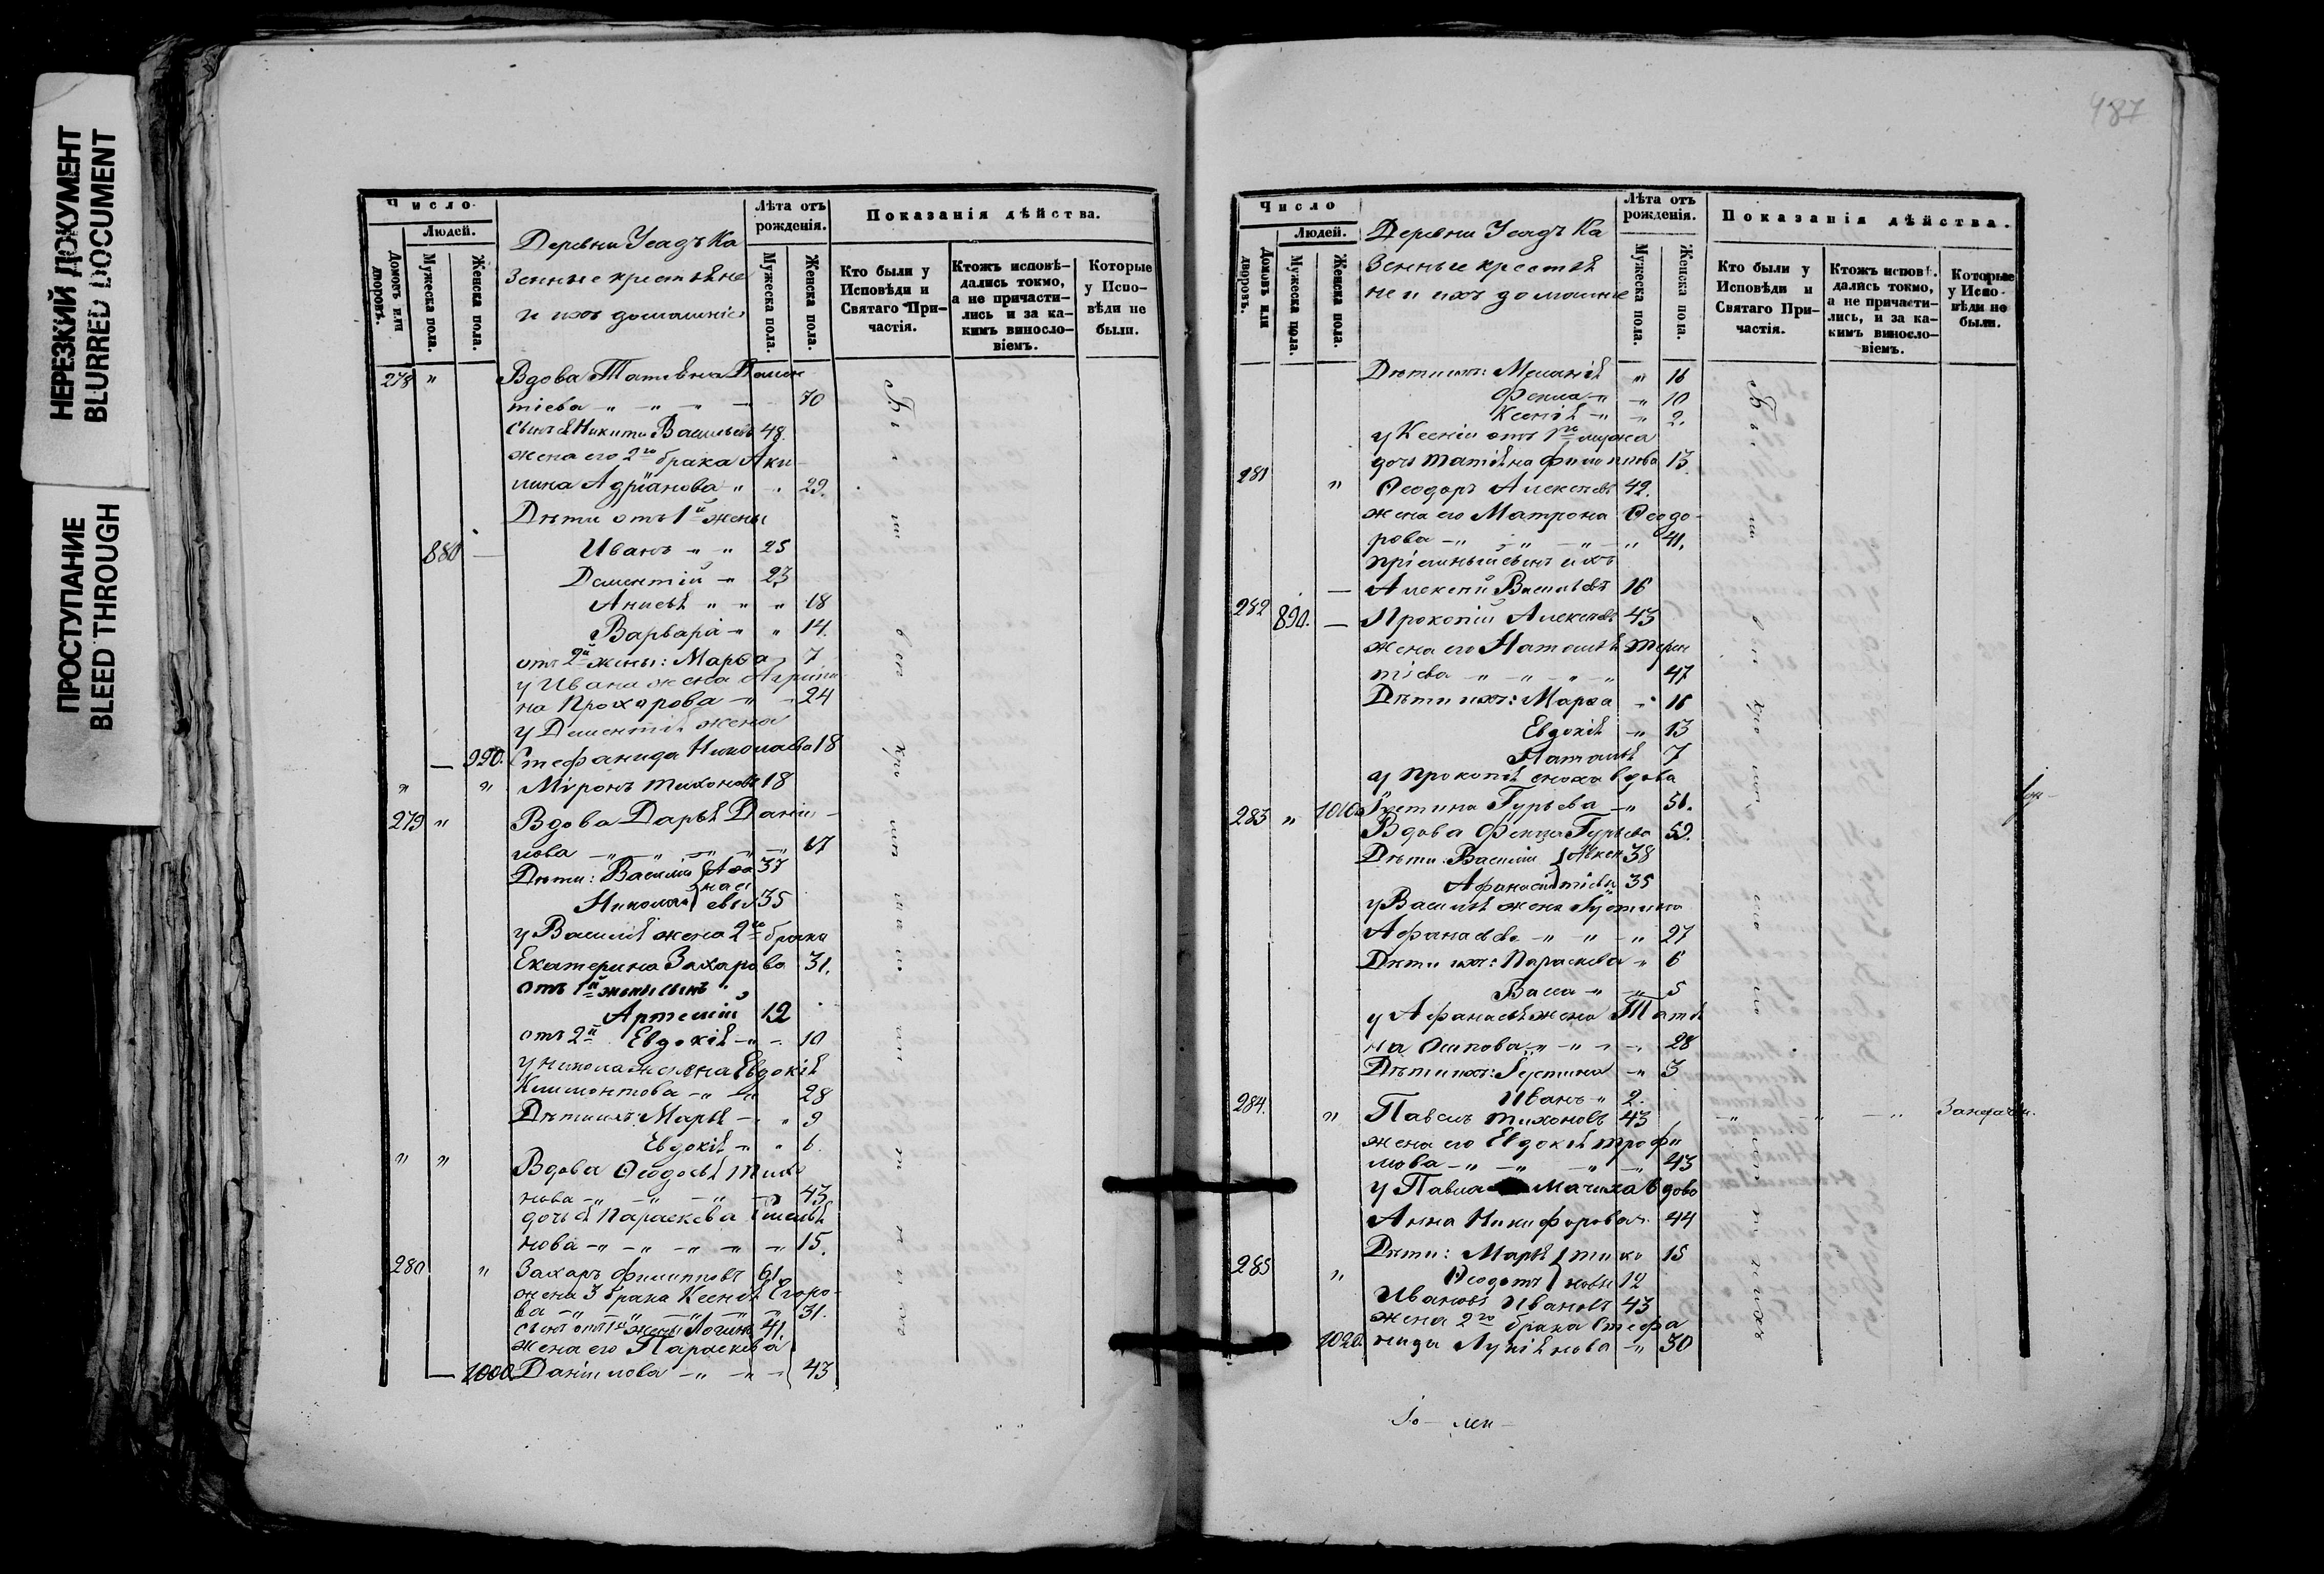 НЕРЕЗКИЙ ДОКУМЕНТ
BLURRED DOCUMENT
ПРОСТУПАНИЕ
BLEED THROUGH
Число.
Людей.
Домовъ или дворовъ.
Мужеска пола.
Женска пола.
Деревни Усадъ Ка
зенные крестьяне
и ихъ домашніе
Лѣта отъ рожденія.
Мужеска пола.
Женска пола.
Показанія дѣйства.
Кто были у Исповѣди и Святаго Причастія.
Ктожъ исповѣдались токмо, а не причастились и за какимъ винословіемъ.
Которые у Исповѣди не были.
278 " Вдова Татіяна Демен
тіева -"- " - " - 70
сынъ ея Никита Васильевъ 48.
жена его 2го брака Аки
лина Адріанова " - " 29.
Дѣти отъ 1й жены
880 — Иванъ -"- " 25
Дементій -" 23
Анисья " " " 18
Варвара -" " 14.
отъ 2й жены: Марѳа 7
у Ивана жена Агрипи
на Прохорова -" - 24
у Дементія жена
— 990. Стефанида Николаева 18
" " Міронъ Тихоновъ 18
279 " Вдова Дарья Дани
лова -"-"-"-"-"
Дѣти: Василій } Аѳа 37
нась
Николай } евы 35
у Василія жена 2го брака
Екатерина Захарова 31.
отъ 1й жены сынъ
Артемій 12
отъ 2й Евдокія -" - 10
у Николая жена Евдокія
Климонтова -" -" 28
Дѣти ихъ: Марья - " 9
Евдокія -" " 6.
" " Вдова Ѳеодосья Тихо
нова -" -" -" -" 43
дочь ея Параскева
нова -" -" -" -" -" 15.
280 " Захаръ Филипповъ 61.
жена 3 брака Ксенія Егоро
ва -" -" -" -" -" 31.
сынъ отъ 1й жены Логинъ 41.
жена его Параскева
— 1000. Данилова -" -" -" 43
487
Число
Людей.
Домовъ или дворовъ.
Мужеска пола.
Женска пола.
Деревни Усадъ Ка
зенные крестья
не и ихъ домашніе
Лѣта отъ рожденія.
Мужеска пола.
Женска пола.
Показанія дѣйства.
Кто были у Исповѣди и Святаго Причастія.
Ктожъ исповѣдались токмо, а не причастились, и за какимъ винословіемъ.
Которые у Исповѣди не были.
Дѣти ихъ: Меланія " 16
Фекла -" -" 10
Ксенія -" -" 2.
у Ксеніи отъ 1го мужа
дочь Татіяна Филиппова 13.
281 " Ѳеодоръ Алексѣевъ 42.
жена его Матрона Ѳеодо
рова -" -" -" -" 41.
пріемный сынъ ихъ
— Алексѣй Васильевъ 16
282 890. — Прокопій Алексѣевъ 43
жена его Наталья Терен
тіева -" -" -" -" 47
Дѣти ихъ: Марѳа -" 16
Евдокія -" 13
Наталья 7
у Прокопія сноха вдова
1010. Іустина Гурьева -" 51.
283 " Вдова Фекла Гурьева 59.
Дѣти: Василій } Авксен 38
Афанасій } тіевы 35
у Василья жена Іустина
Афанасьева -" -" -" 27
Дѣти ихъ: Параскева " 6
Васса -" -" 5
у Афанасія жена Татія
на Осипова -" -" - " 28
Дѣти ихъ: Іустина -" 3
Иванъ -" 2.
284. " Павелъ Тихоновъ 43 -" -" -"
жена его Евдокія Трофи
мова -" -" -" -" 43
у Павла мачиха вдова
Анна Никифорова -" 44
Дѣти: Марья } Тихо 15
Ѳеодотъ } новы 12
285 " Иванъ Ивановъ 43
жена 2го брака Стефа
1020. нида Лукіянова -" 30